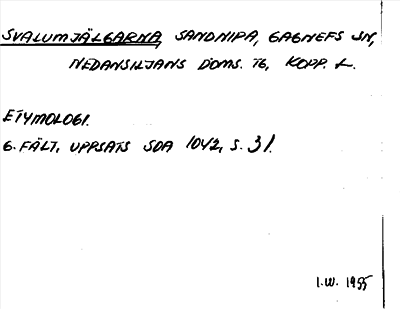 SVALUMJÄLGARNA, SANDNIPA, GAGNEFS SN,
NEDANSILJANS DOMS. TG, KOPP. L.
ETYMOLOGI.
G. FÄLT, UPPSATS SOA 1042, S. 31.
I.W. 1955